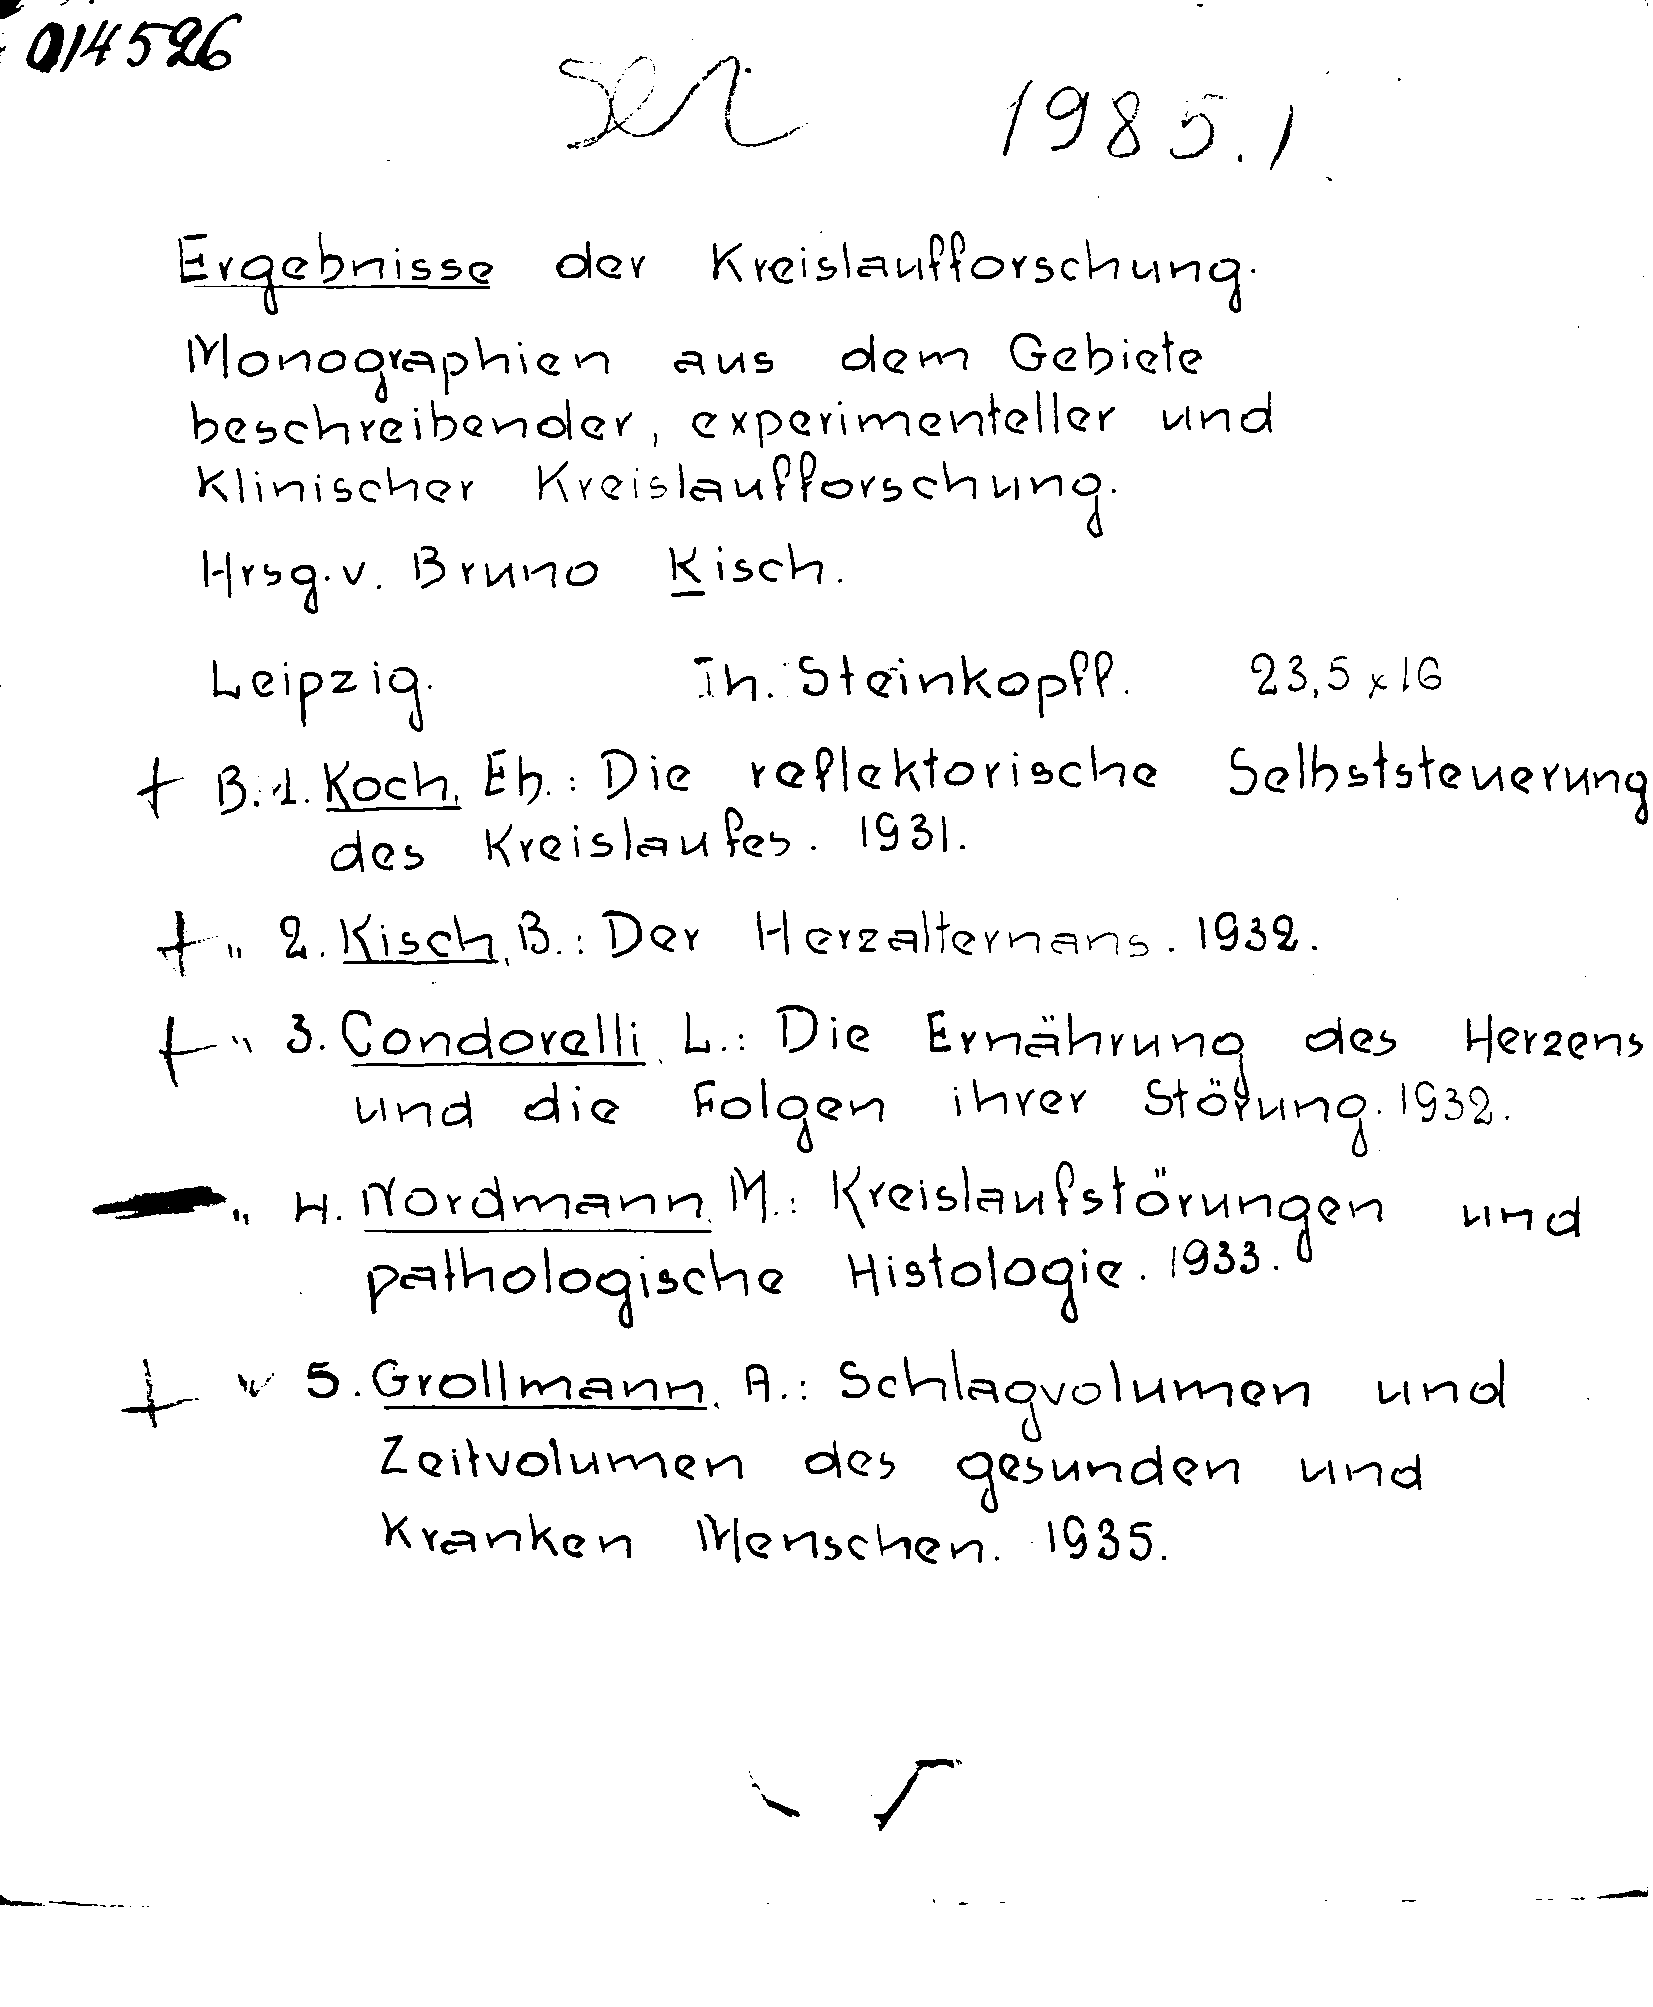 014526
ser 1985.1
Ergebnisse der Kreislaufforschung.
Monographien aus dem Gebiete
beschreibender, experimenteller und
klinischer Kreislaufforschung.
Hrsg. v. Bruno Kisch.
Leipzig. Th. Steinkopff. 23,5 x 16
+ B. 1. Koch, Eb.: Die reflektorische Selbststeuerung
des Kreislaufes. 1931.
+ " 2. Kisch, B.: Der Herzalternans. 1932.
+ " 3. Condorelli, L.: Die Ernährung des Herzens
und die Folgen ihrer Störung. 1932.
" 4. Nordmann, M.: Kreislaufstörungen und
pathologische Histologie. 1933.
+ " 5. Grollmann, A.: Schlagvolumen und
Zeitvolumen des gesunden und
kranken Menschen. 1935.